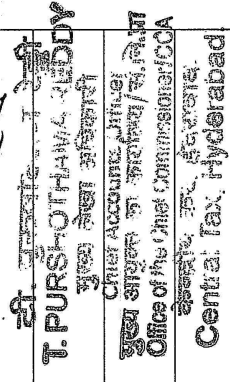 टी.
T. PURSHOTHAMA REDDY
मुख्य लेखा अधिकारी
Chief Accounts Officer
मुख्य आयुक्त का कार्यालय
Office of the Chief Commissioner/CCA
हैदराबाद
Central Tax, Hyderabad